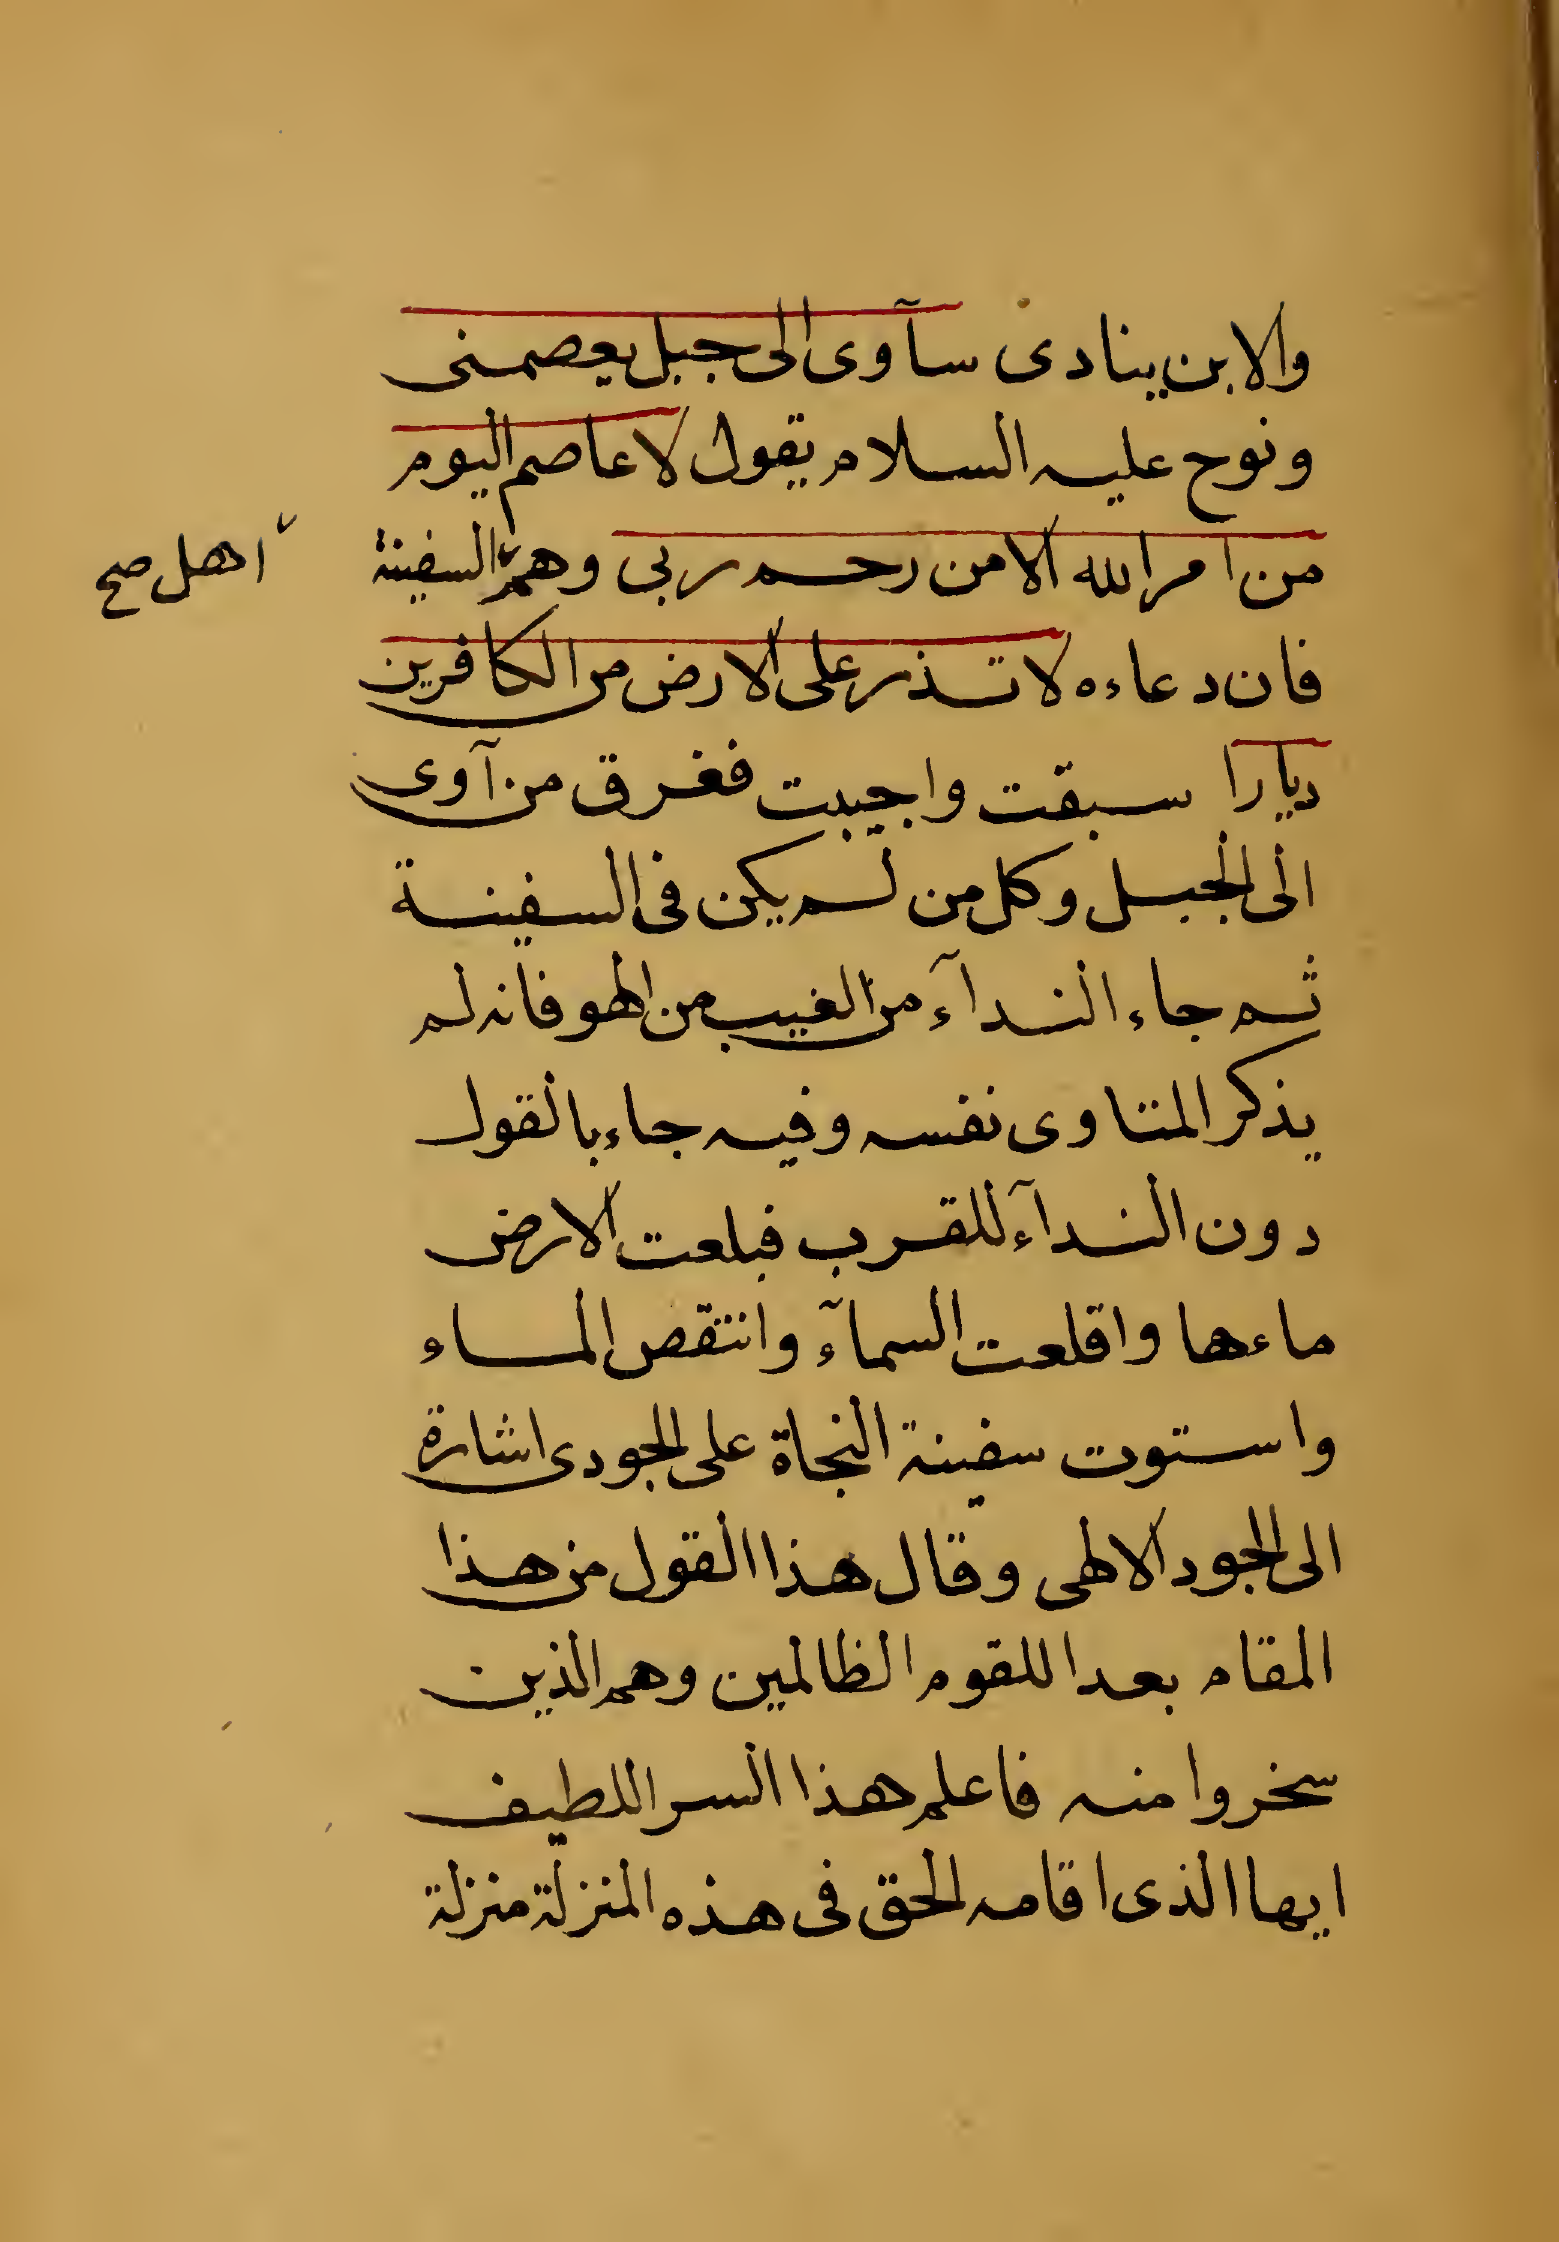 والابن ينادى سآوى الى جبل يعصمنى
ونوح عليه السلام يقول لا عاصم اليوم
من امر الله الا من رحم ربى وهم السفينة
اهل صح
فان دعاءه لا تذر على الارض من الكافرين
ديارا سبقت واجيبت فغرق من آوى
الى الجبل وكل من لم يكن فى السفينة
ثم جاء الندآء من الغيب من الهو فانه لم
يذكر المتاوى نفسه وفيه جاء بالقول
دون الندآء للقرب فبلعت الارض
ماءها واقلعت السمآء وانتقص الماء
واستوت سفينة النجاة على الجودى اشارة
الى الجود الالهى وقال هذا القول من هذا
المقام بعدا للقوم الظالمين وهم الذين
سخروا منه فاعلم هذا السر اللطيف
ايها الذى اقامه الحق فى هذه المنزلة منزلة